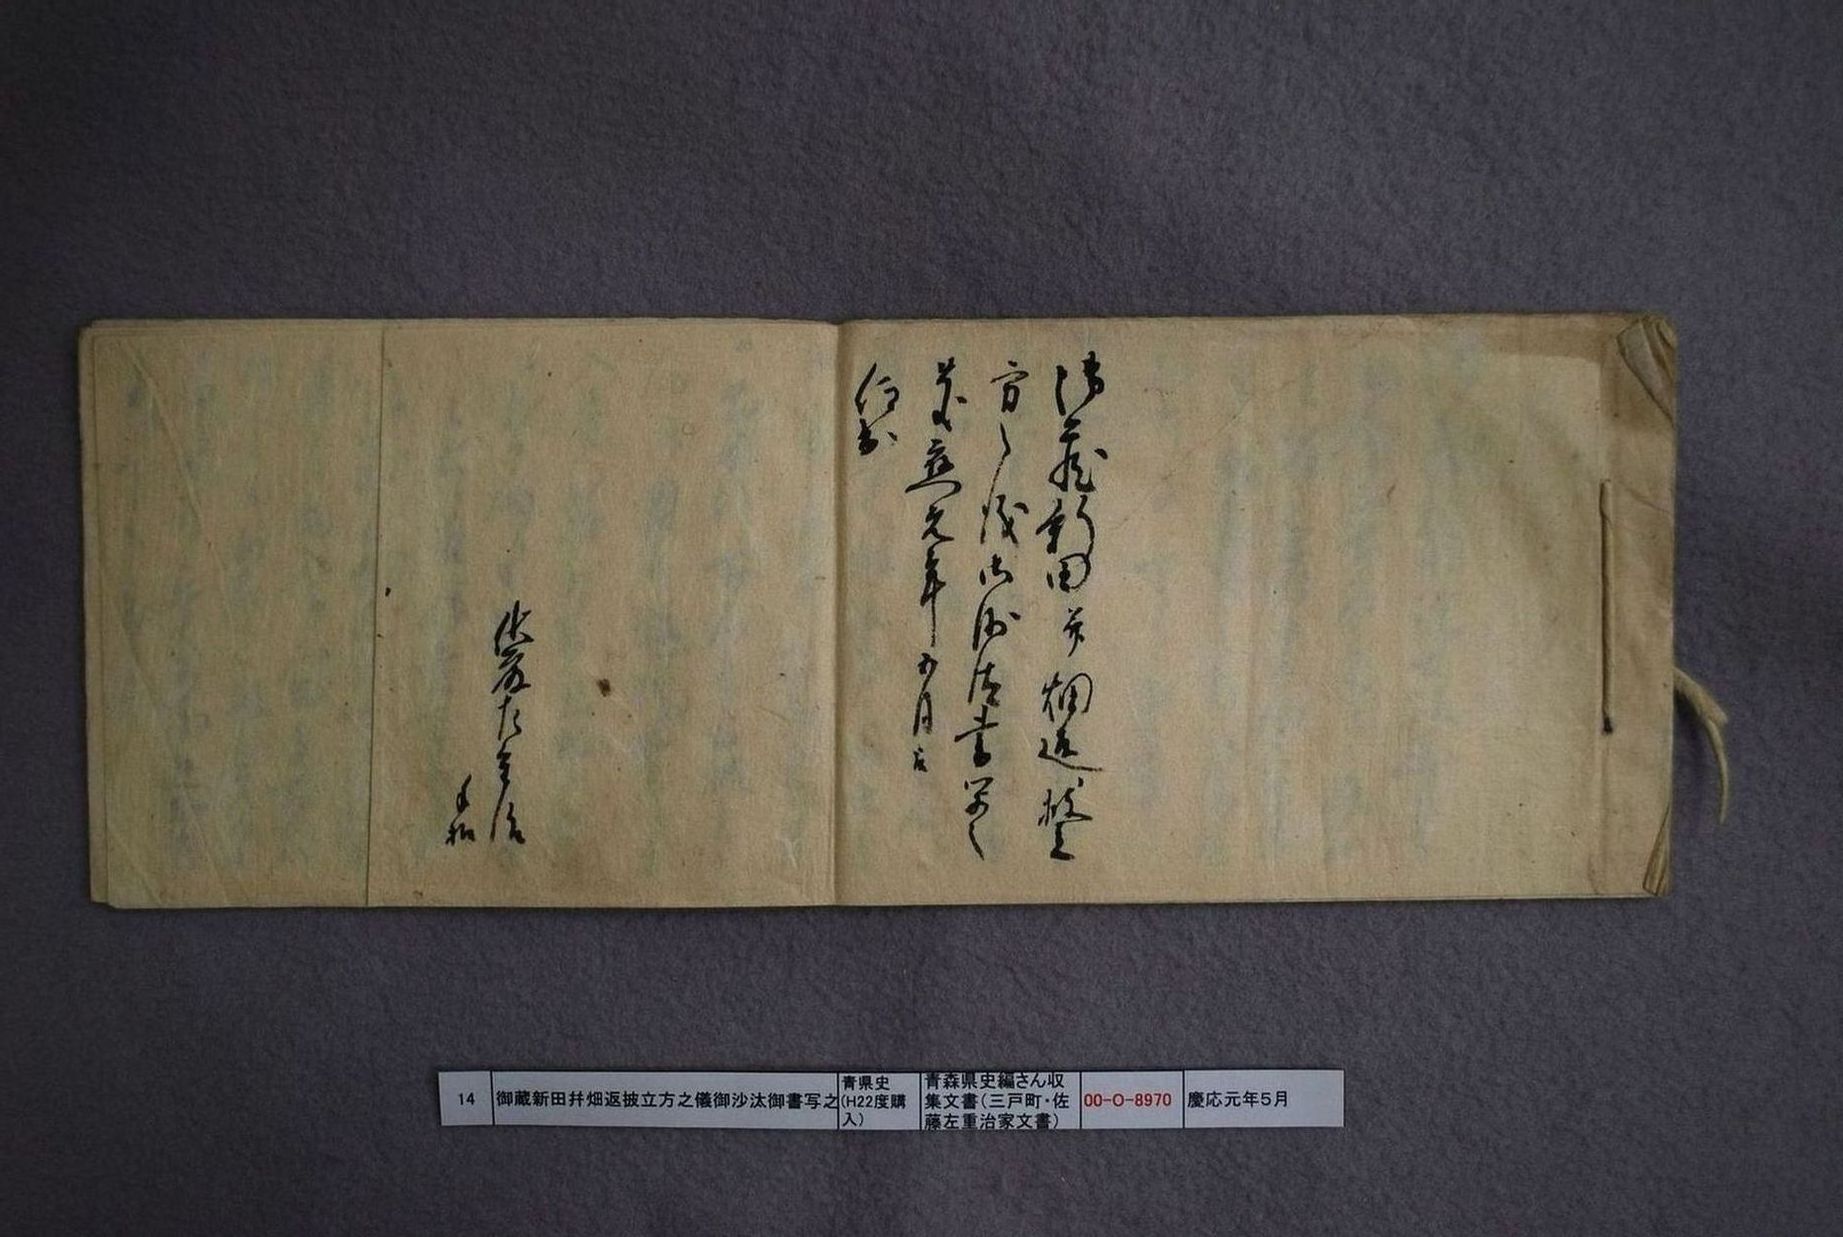 御蔵新田并畑返披立
方之儀御沙汰書写之
慶應元年五月
佐藤左重治
14
御蔵新田幷畑返披立方之儀御沙汰御書写之
青県史
(H22度購
入)
青森県史編さん収
集文書(三戸町・佐
藤左重治家文書)
00-O-8970
慶応元年5月